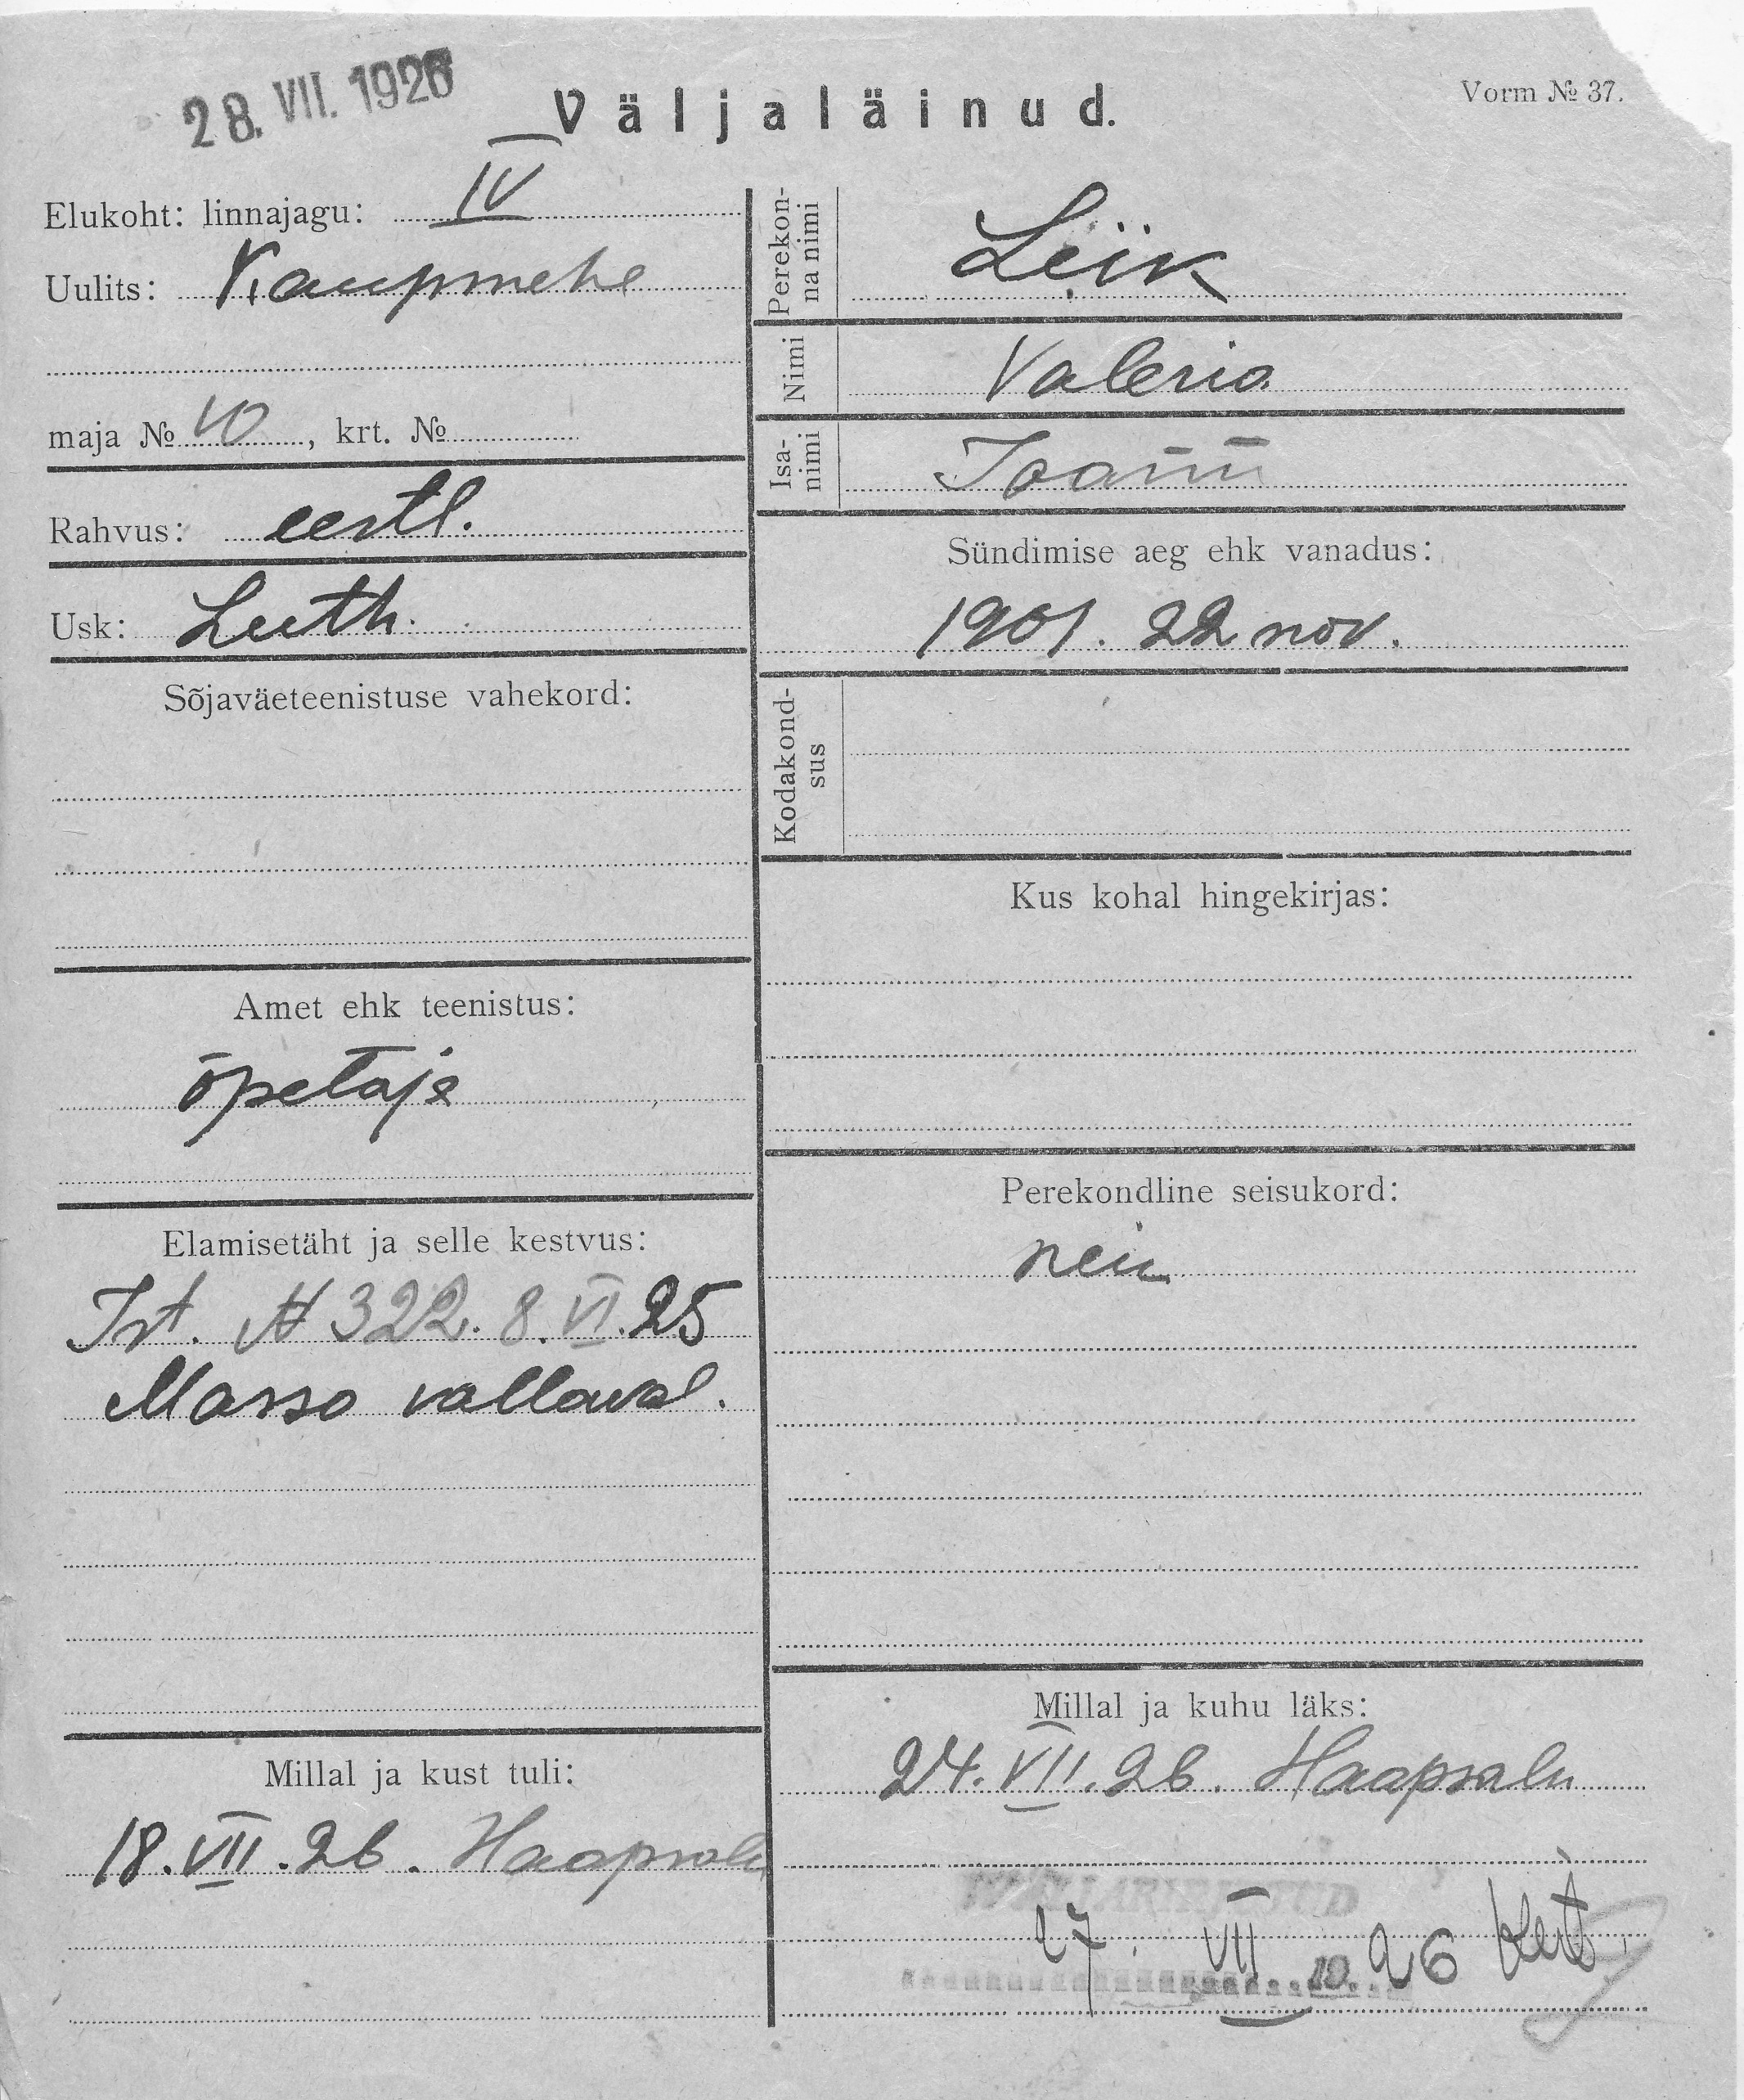 28. VII. 1926
Väljaläinud.
Vorm № 37.
Elukoht: linnajagu: IV
Uulits: Kaupmehe
maja № 40, krt. №
Rahvus: eestl.
Usk: Luth.
Sõjaväeteenistuse vahekord:
Amet ehk teenistus:
õpetaja
Elamisetäht ja selle kestvus:
Ist. № 322. 8. VI. 25
Masso vallaval.
Millal ja kust tuli:
18. VII. 26. Haapsalu
Perekonna nimi
Leik
Nimi
Valeria
Isanimi
Jaani
Sündimise aeg ehk vanadus:
1901. 22 nov.
Kodakondsus
Kus kohal hingekirjas:
Perekondline seisukord:
neiu
Millal ja kuhu läks:
24. VII. 26. Haapsalu
27. VII 19. 26